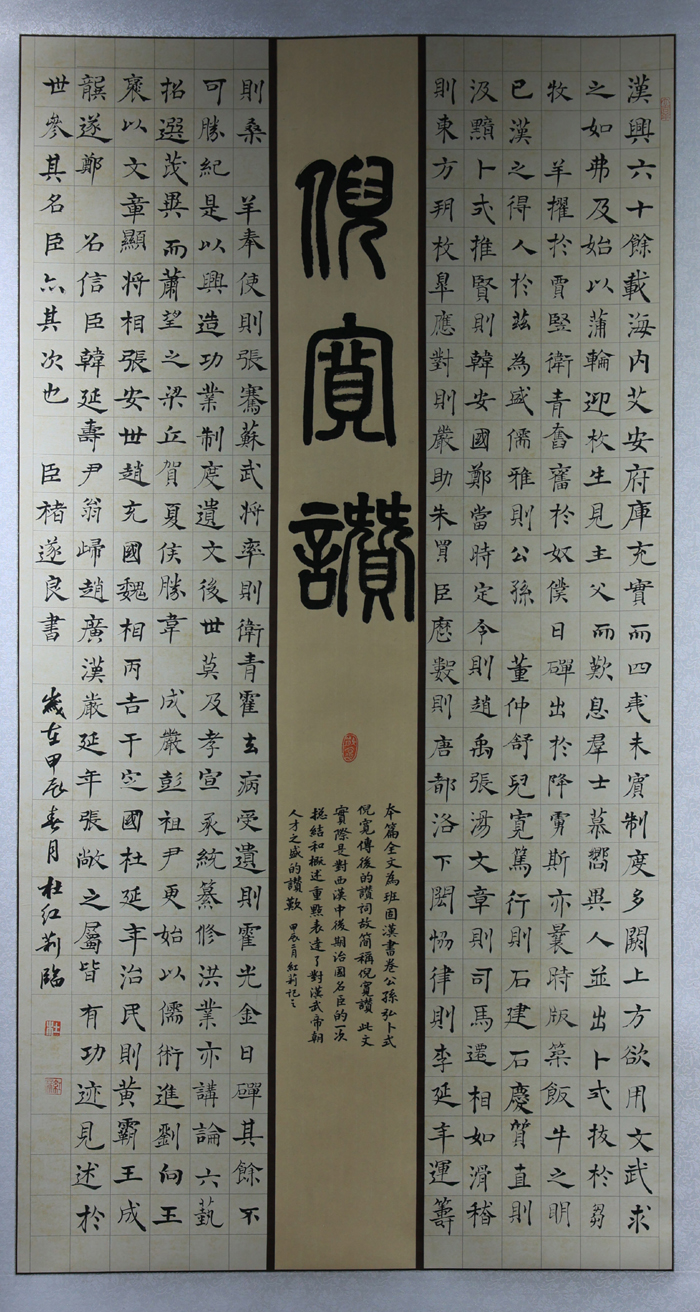 漢興六十餘載海内艾安府庫充實而四夷未賓制度多闕上方欲用文武求
之如弗及始以蒲輪迎枚生見主父而歎息羣士慕嚮異人並出卜式拔於芻
牧 羊擢於賈竪衛青奮奮於奴僕日磾出於降虜斯亦曩時版築飯牛之明
已漢之得人於兹為盛儒雅則公孫 董仲舒兒寬篤行則石建石慶質直則
汲黯卜式推賢則韓安國鄭當時定令則趙禹張湯文章則司馬遷相如滑稽
則東方朔枚皋應對則嚴助朱買臣歷數則唐都洛下閎協律則李延年運籌
倪寬讚
本篇全文為班固漢書卷公孫弘卜式
倪寬傳後的讚詞故簡稱倪寬讚 此文
實際是對西漢中後期治國名臣的一次
總結和概述重點表達了對漢武帝朝
人才之盛的讚歎 甲辰二月紅莉記之
則桑 羊奉使則張騫蘇武將率則衛青霍去病受遺則霍光金日磾其餘不
可勝紀是以興造功業制度遺文後世莫及孝宣承統纂修洪業亦講論六藝
招選茂異而蕭望之梁丘賀夏侯勝韋 成嚴彭祖尹更始以儒術進劉向王
褒以文章顯將相張安世趙充國魏相丙吉于定國杜延年治民則黃霸王成
龔遂鄭 召信臣韓延壽尹翁歸趙廣漢嚴延年張敞之屬皆有功迹見述於
世參其名臣亦其次也 臣褚遂良書 歲在甲辰春月杜紅莉臨